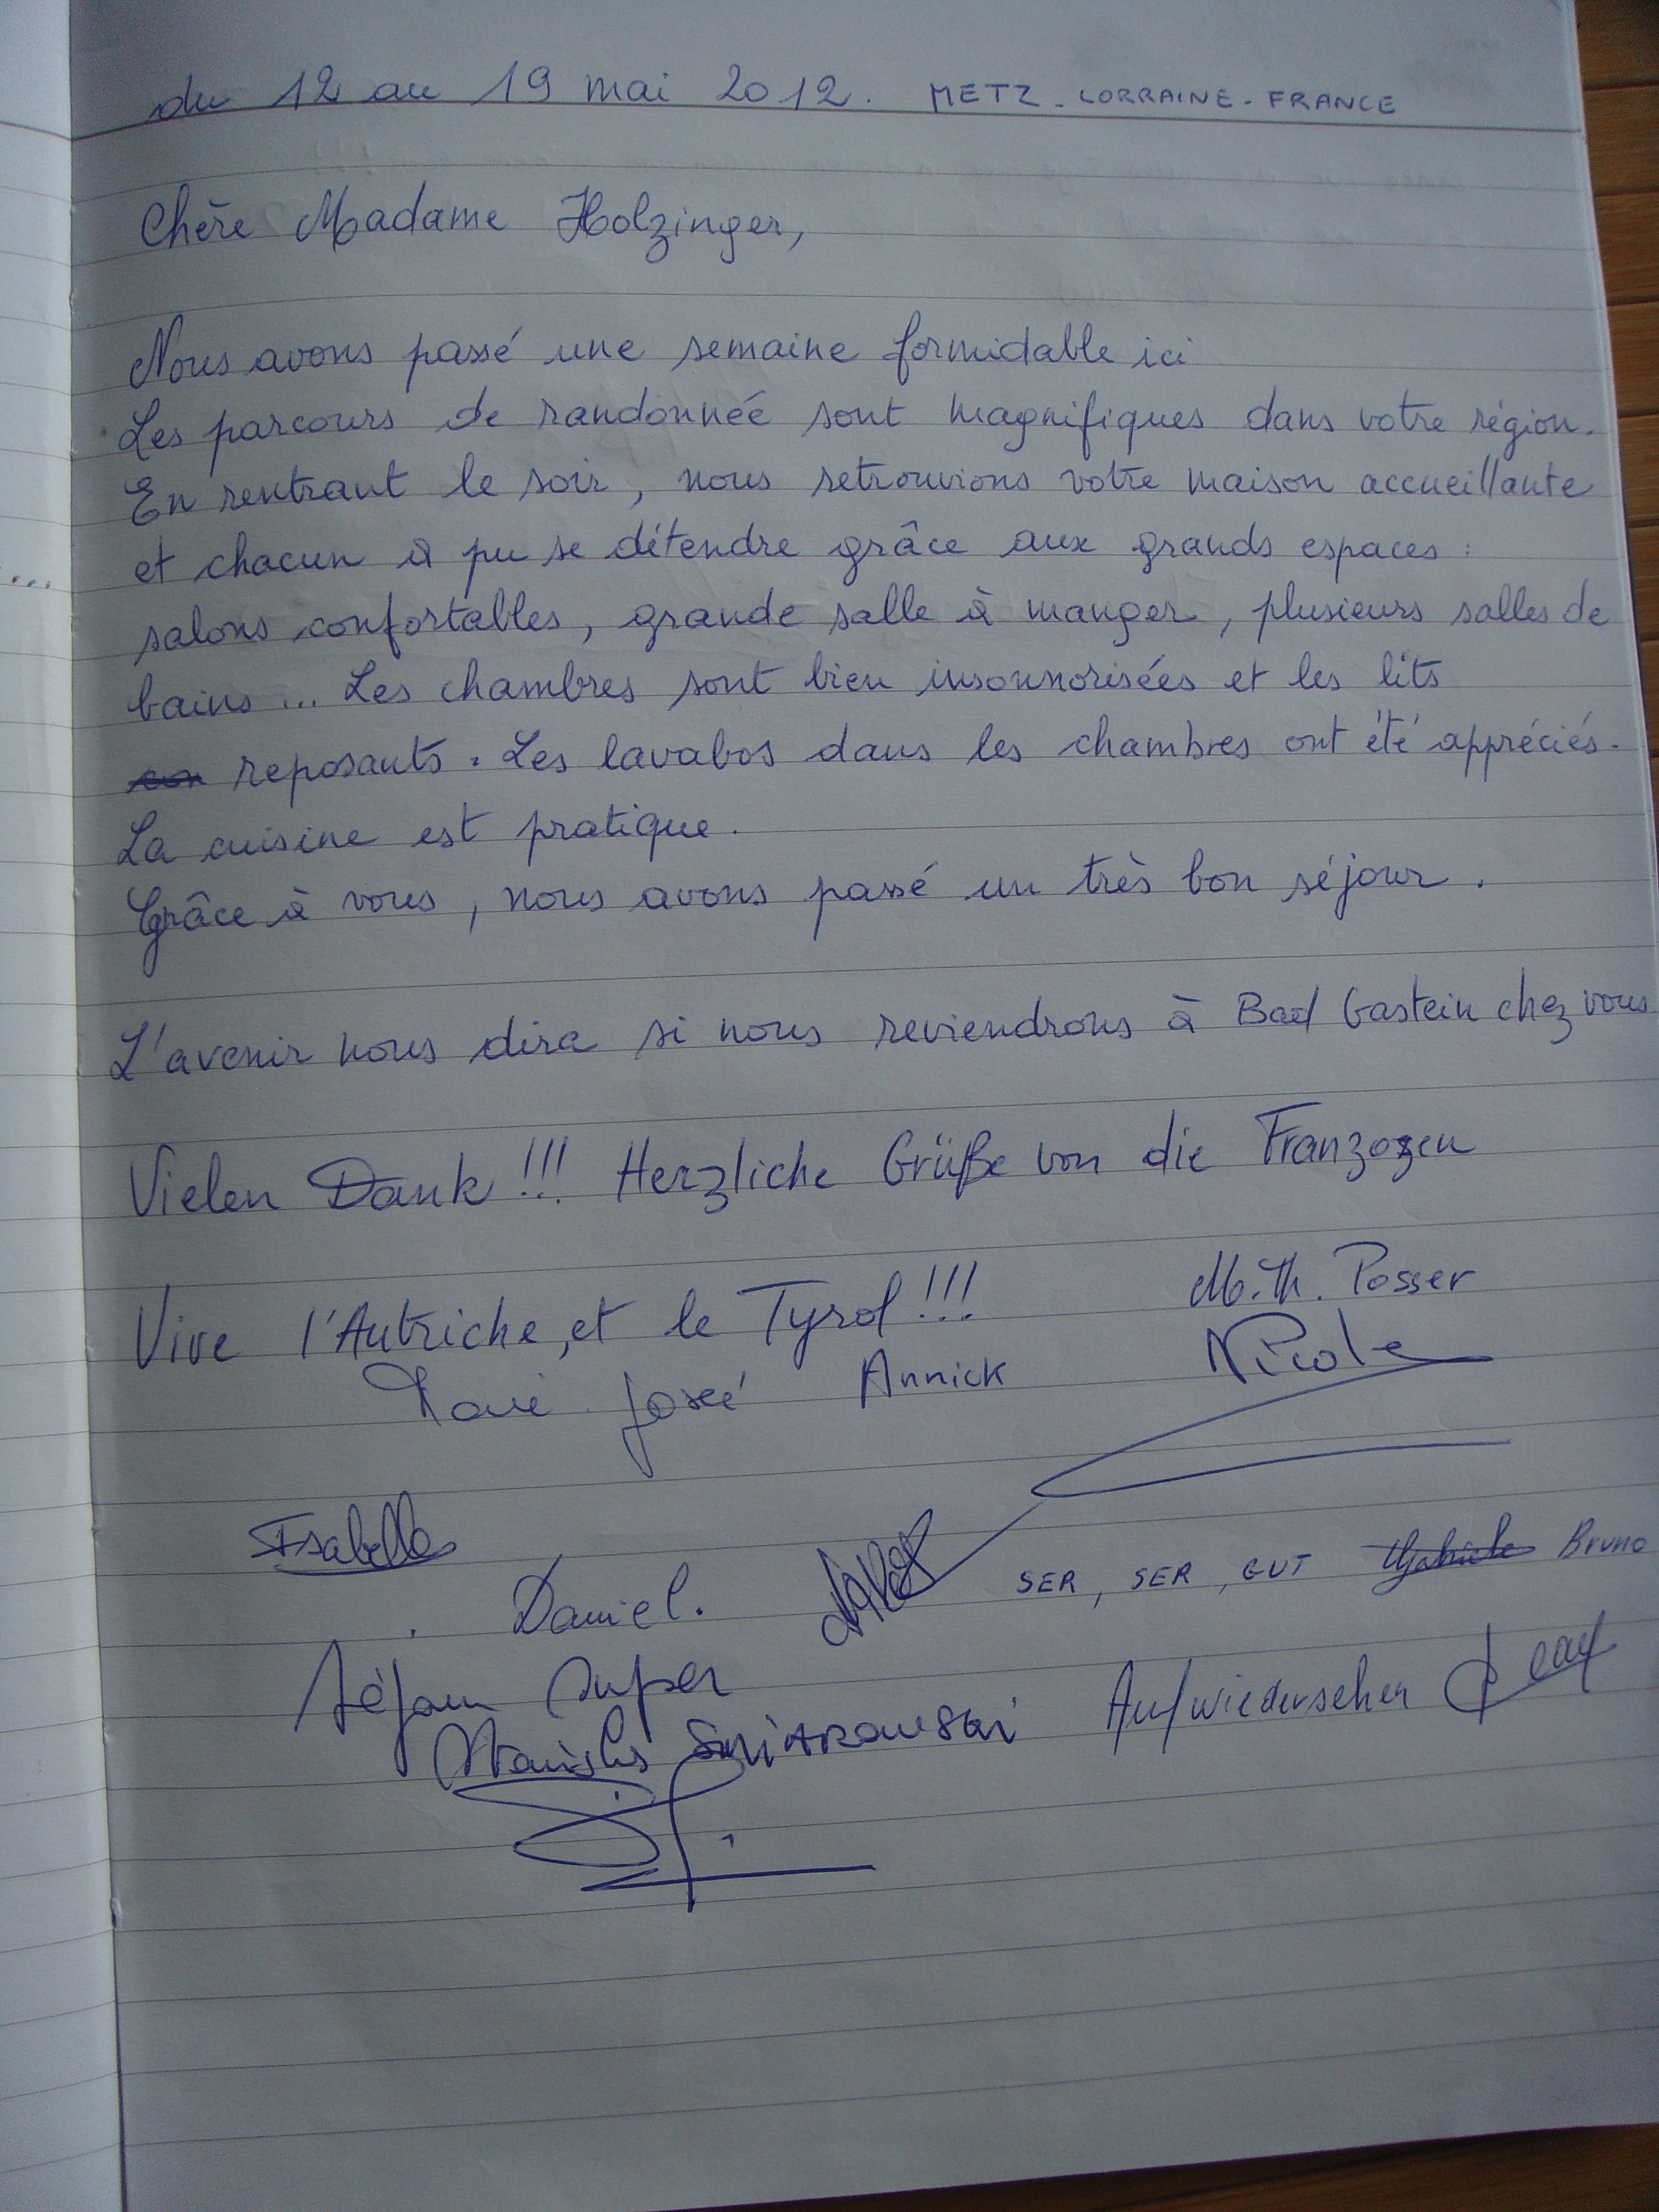 du 12 au 19 mai 2012. METZ - LORRAINE - FRANCE
Chère Madame Holzinger,
Nous avons passé une semaine formidable ici
Les parcours de randonnée sont magnifiques dans votre région.
En rentrant le soir, nous retrouvions votre maison accueillante
et chacun a pu se détendre grâce aux grands espaces :
...
salons confortables, grande salle à manger, plusieurs salles de
bains ... Les chambres sont bien insonnorisées et les lits
reposants. Les lavabos dans les chambres ont été appréciés.
La cuisine est pratique.
Grâce à vous, nous avons passé un très bon séjour.
L'avenir nous dira si nous reviendrons à Bad Gastein chez vous
Vielen Dank !!! Herzliche Grüße von die Franzozen
M.Th. Posser
Vive l'Autriche, et le Tyrol !!!
Nicole
Marie José Annick
Isabelle
SER, SER, GUT Bruno
Daniel.
Séjour Super
Aufwiedersehen
Stanislas